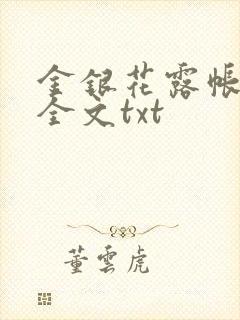 金银花露帐
全文txt
董雲虎